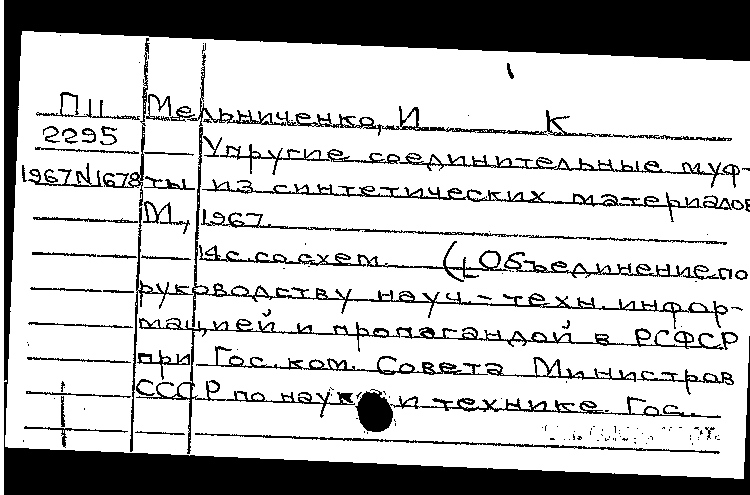 ПII Мельниченко, И К
2295 Упругие соединительные муф-
1967 N 1678 ты из синтетических материалов
М., 1967.
14 с. со схем. (Объединение по
руководству науч.-техн. инфор-
мацией и пропагандой в РСФСР
при Гос. ком. Совета Министров
СССР по науке и технике. Гос.